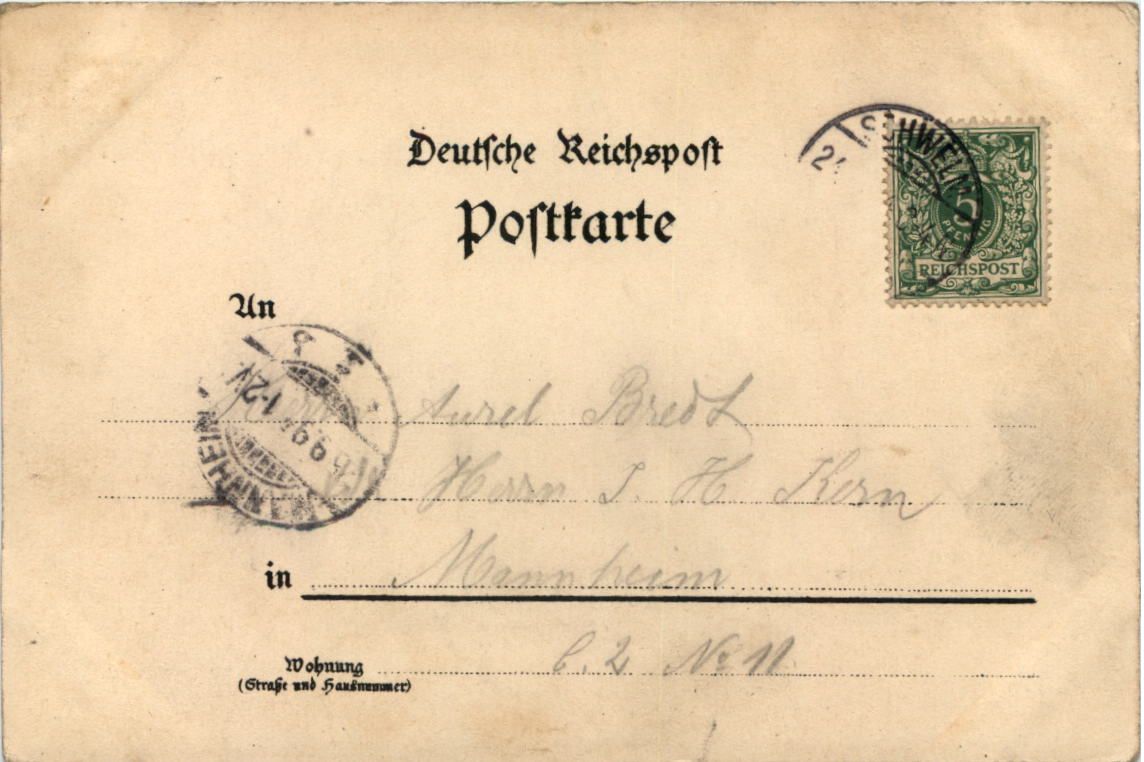 Deutsche Reichspost
Postkarte
SCHWELM
5
PFENNIG
REICHSPOST
An
MANNHEIM
1-2V
99
Herrn Aurel Bredt
Herrn J. H. Kern
in Mannheim
C. 2 No 11
Wohnung
(Straße und Hausnummer)